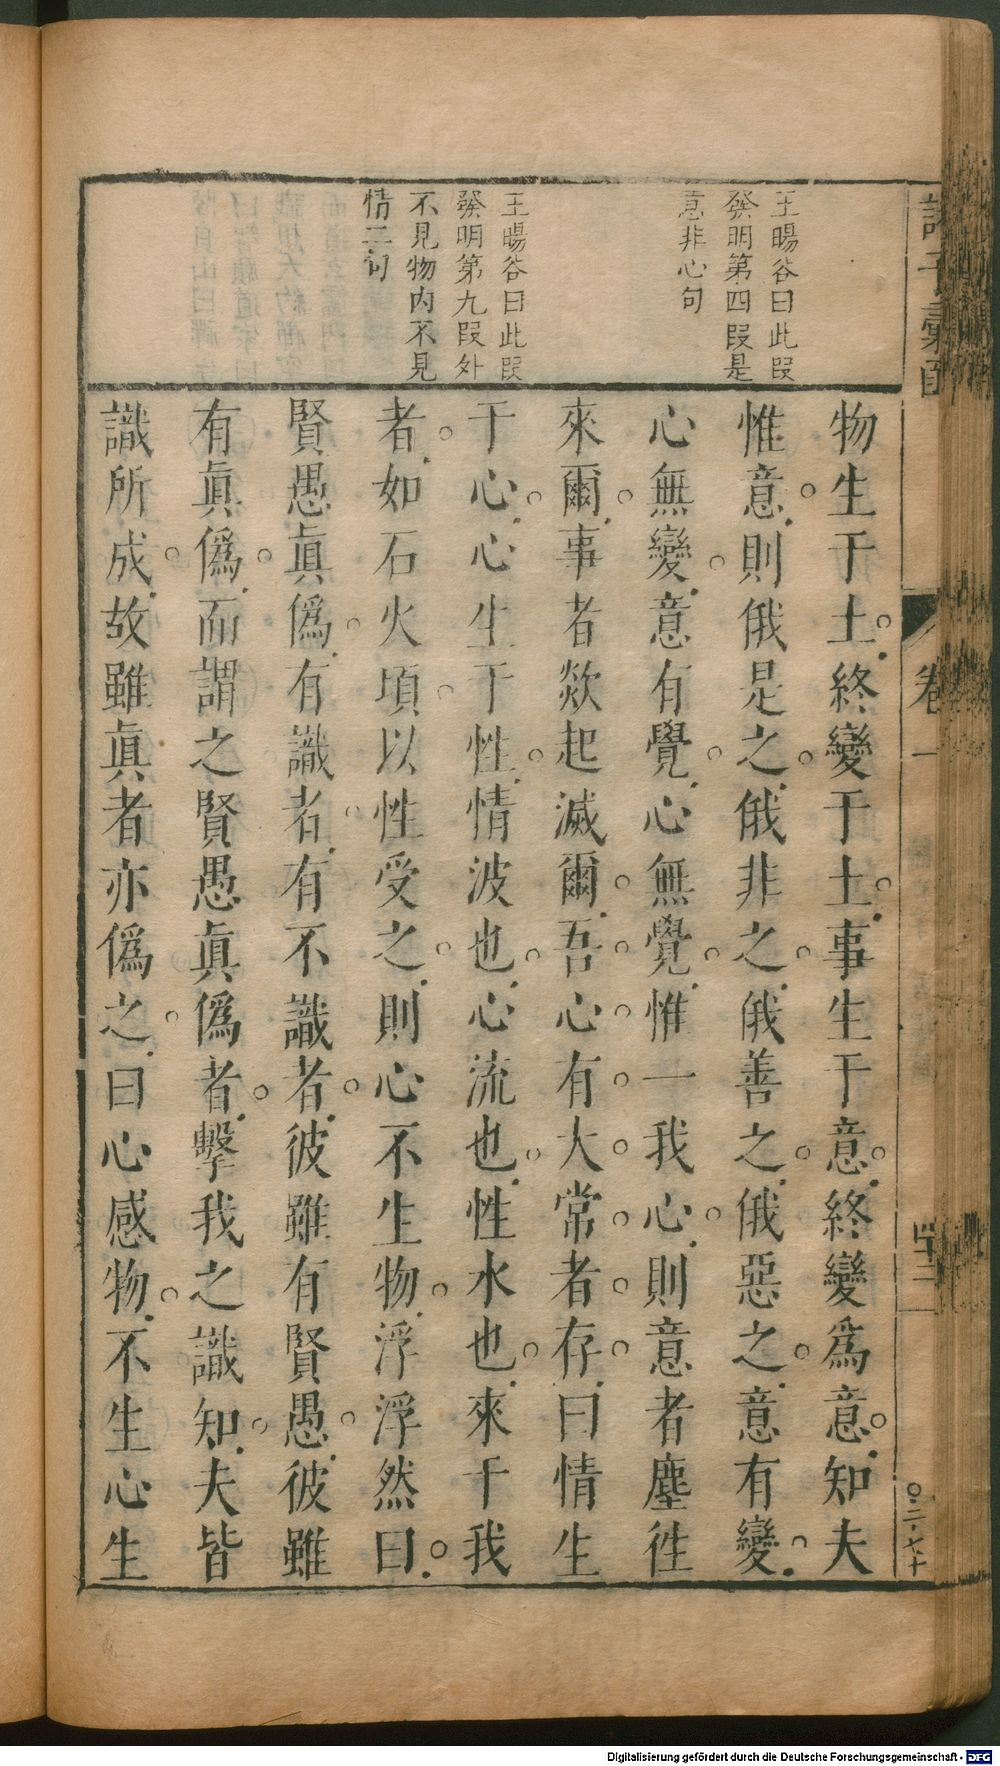 王暘谷曰此段
發明第四段是
意非心句
王暘谷曰此段
發明第九段外
不見物内不見
情二句
物生于土終變于土事生于意終變爲意知夫
惟意則俄是之俄非之俄善之俄惡之意有變
心無變意有覺心無覺惟一我心則意者塵徃
來爾事者欻起滅爾吾心有大常者存曰情生
于心心生于性情波也心流也性水也來干我
者如石火頃以性受之則心不生物浮浮然曰
賢愚眞僞有識者有不識者彼雖有賢愚彼雖
有眞僞而謂之賢愚眞僞者擊我之識知夫皆
識所成故雖眞者亦僞之曰心感物不生心生
卷一
Digitalisierung gefördert durch die Deutsche Forschungsgemeinschaft - DFG